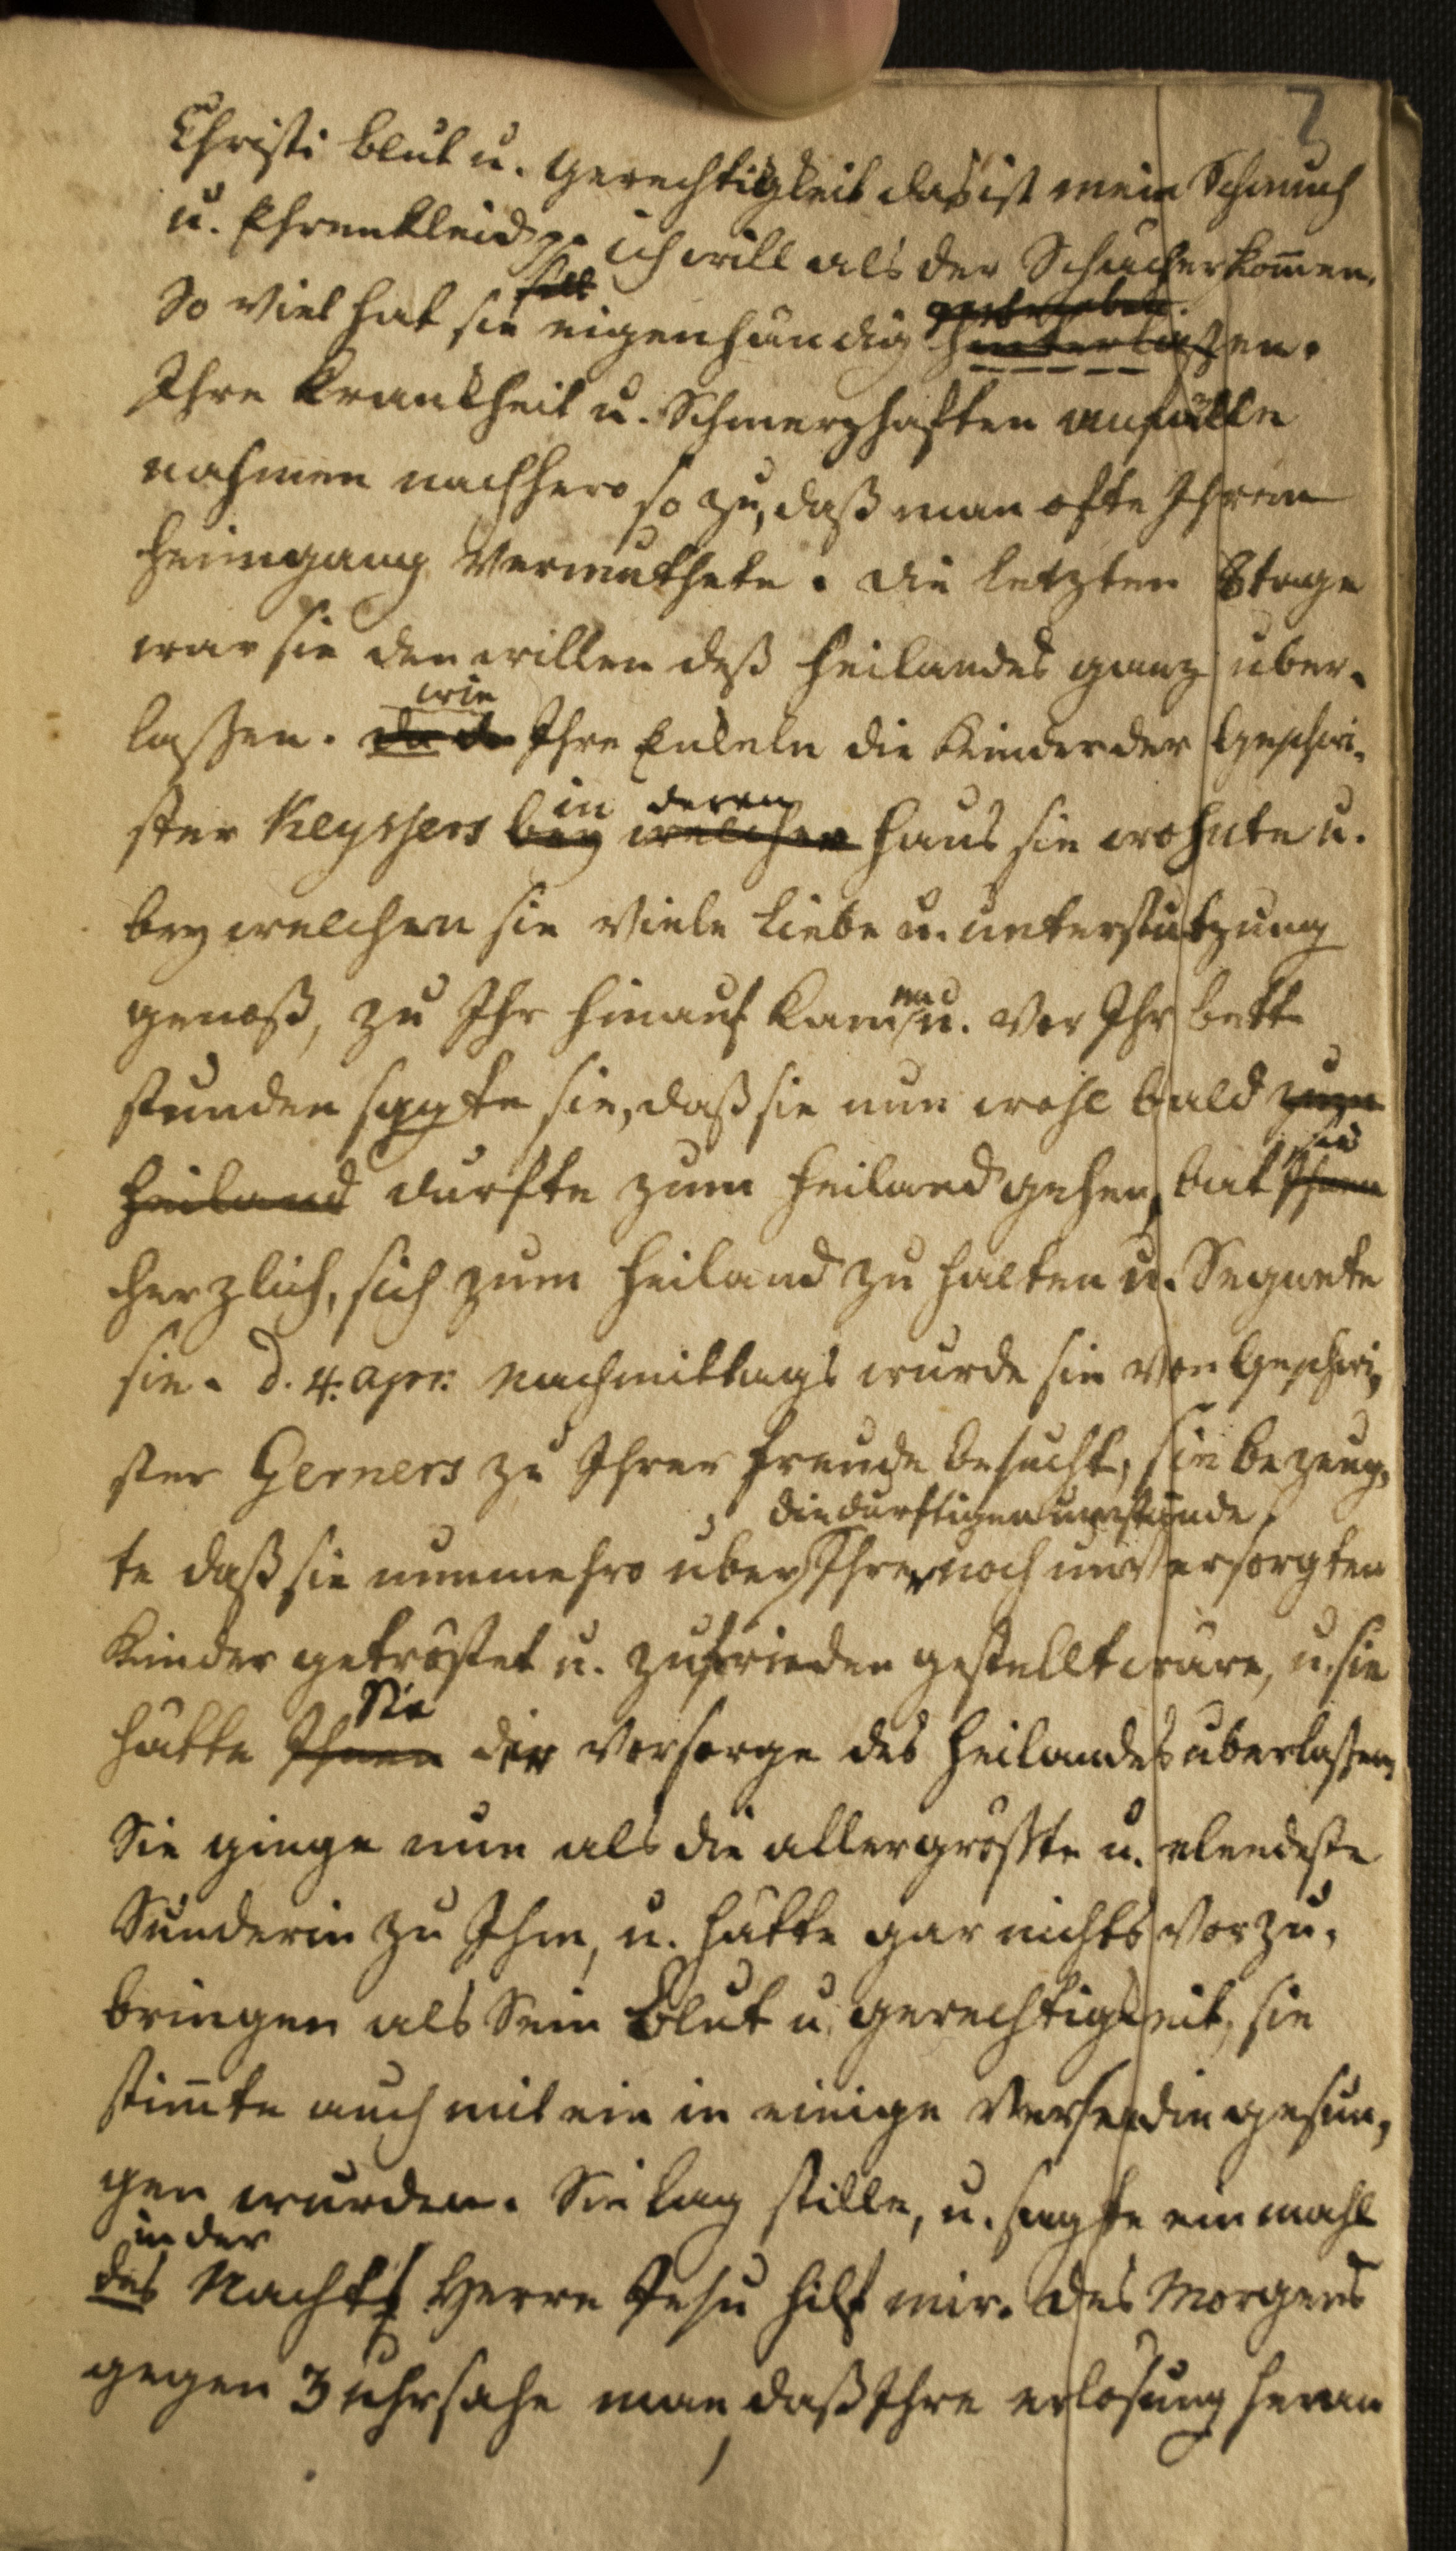 7
Christi blut u. gerechtigkeit das ist mein Schmuck
u. Ehrenkleid pp. ich will als der Schächer kom̄en.
selbst
So viel hat sie eigenhändig hinterlaßen.
Ihre Krankheit u. Schmerzhaften anfälle
nahmen nachhero so zu, daß man ofte Ihren
heimgang Vermuthete. die letzten 8 tage
war sie den willen deß Heilandes ganz über-
wie
laßen. da die Ihre Enkeln die Kinder der Geschwi-
in deren
ster Keyssers bey welcher Haus sie wohnte u.
bey welchen sie viele Liebe u. unterstützung
genoß, zu Ihr hinauf kam u. vor Ihr bett
stunden sagte sie, daß sie nun wohl bald zum
sie
Heiland durfte zum Heiland gehen, bat Ihnen
herzlich, sich zum Heiland zu halten u. Segnete
sie. d. 4. apr. Nachmittags wurde sie von Geschwi-
ster Gerners zu Ihrer freude besucht, sie bezeug-
die durftigen umstände
te daß sie nunmehro über Ihre noch unversorgten
Kinder getröstet u. zufrieden gestellt wäre, u. sie
Sie
hätte Ihnen der Vorsorge des Heilandes überlaßen,
Sie ginge nun als die allergröste u. elendeste
Sünderin zu Ihm, u. hätte gar nichts vorzu-
bringen als Sein Blut u. gerechtigkeit, sie
stim̄te auch mit ein in einige Verse die gesun-
gen wurden. Sie lag stille, u. sagte ein mahl
in der
des Nachts Herre Jesu hilf mir. des Morgens
gegen 3 uhr sahe man, daß Ihre erlösung heran